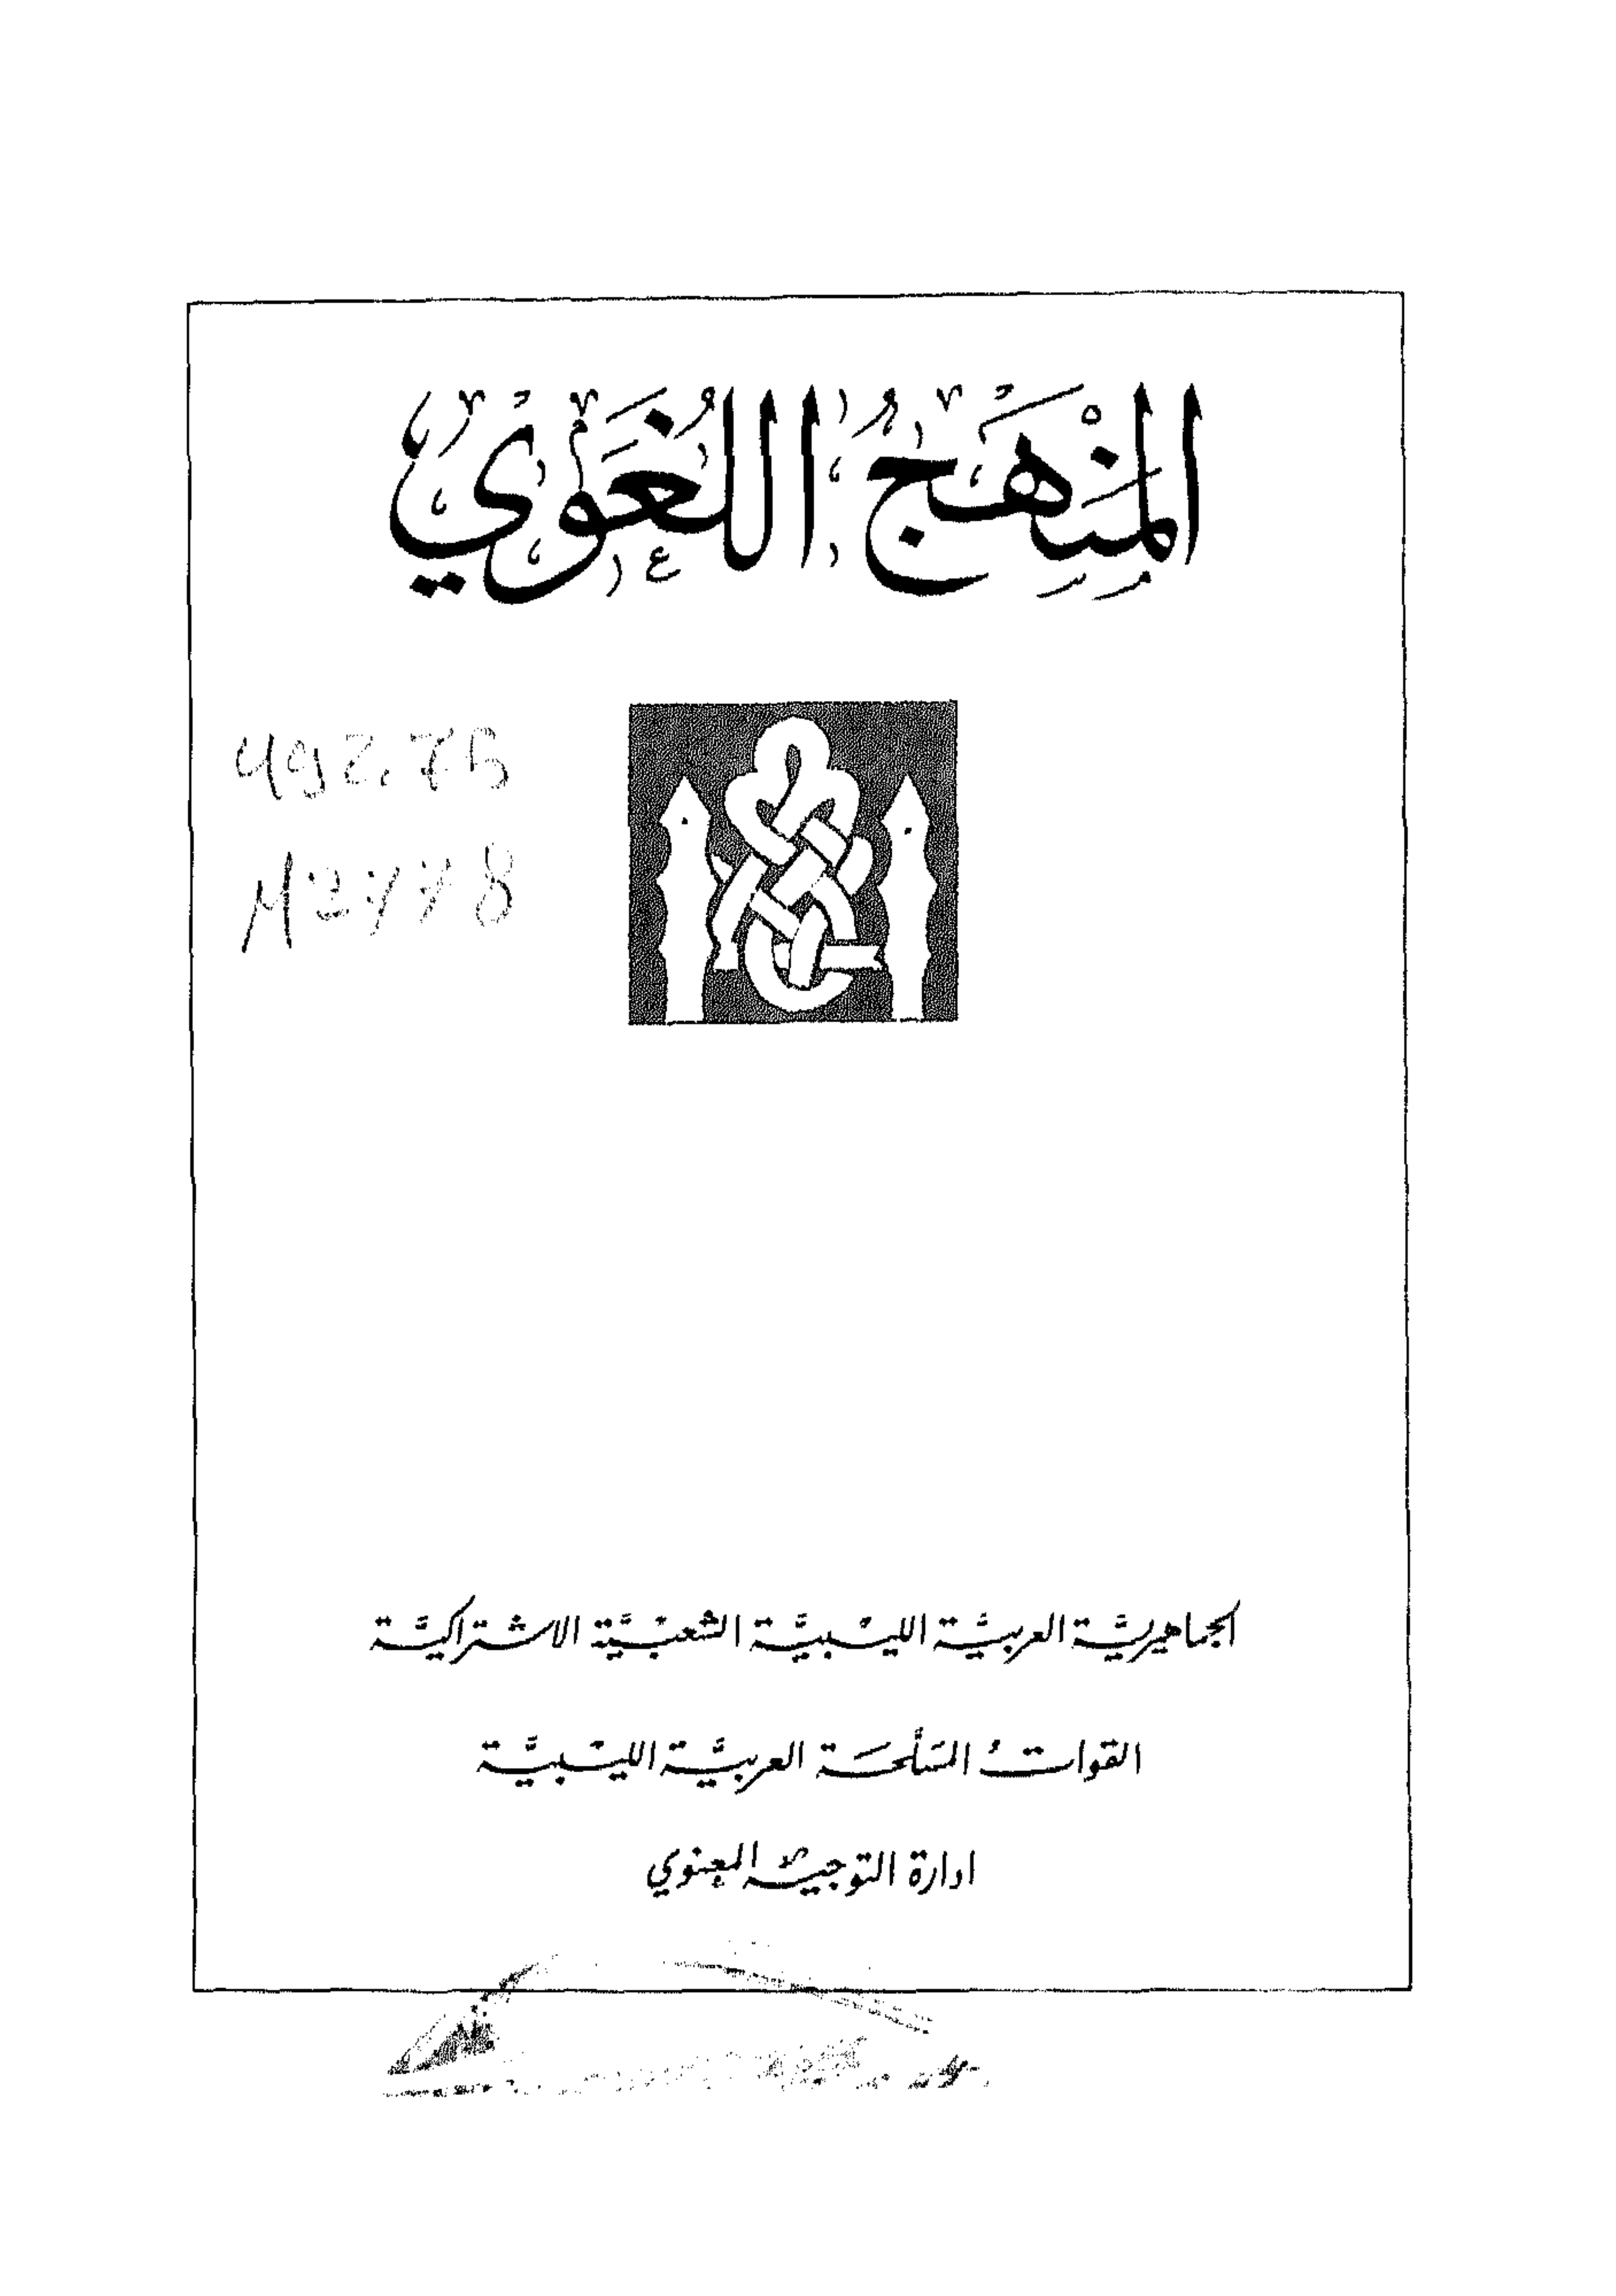 المنهج اللغوي
492.75
الجماهيريَّة العربيَّة الليبيَّة الشعبيَّة الاشتراكيَّة
القواتُ المسَلَّحَة العربيَّة الليبيَّة
ادارة التوجيه المعنوي